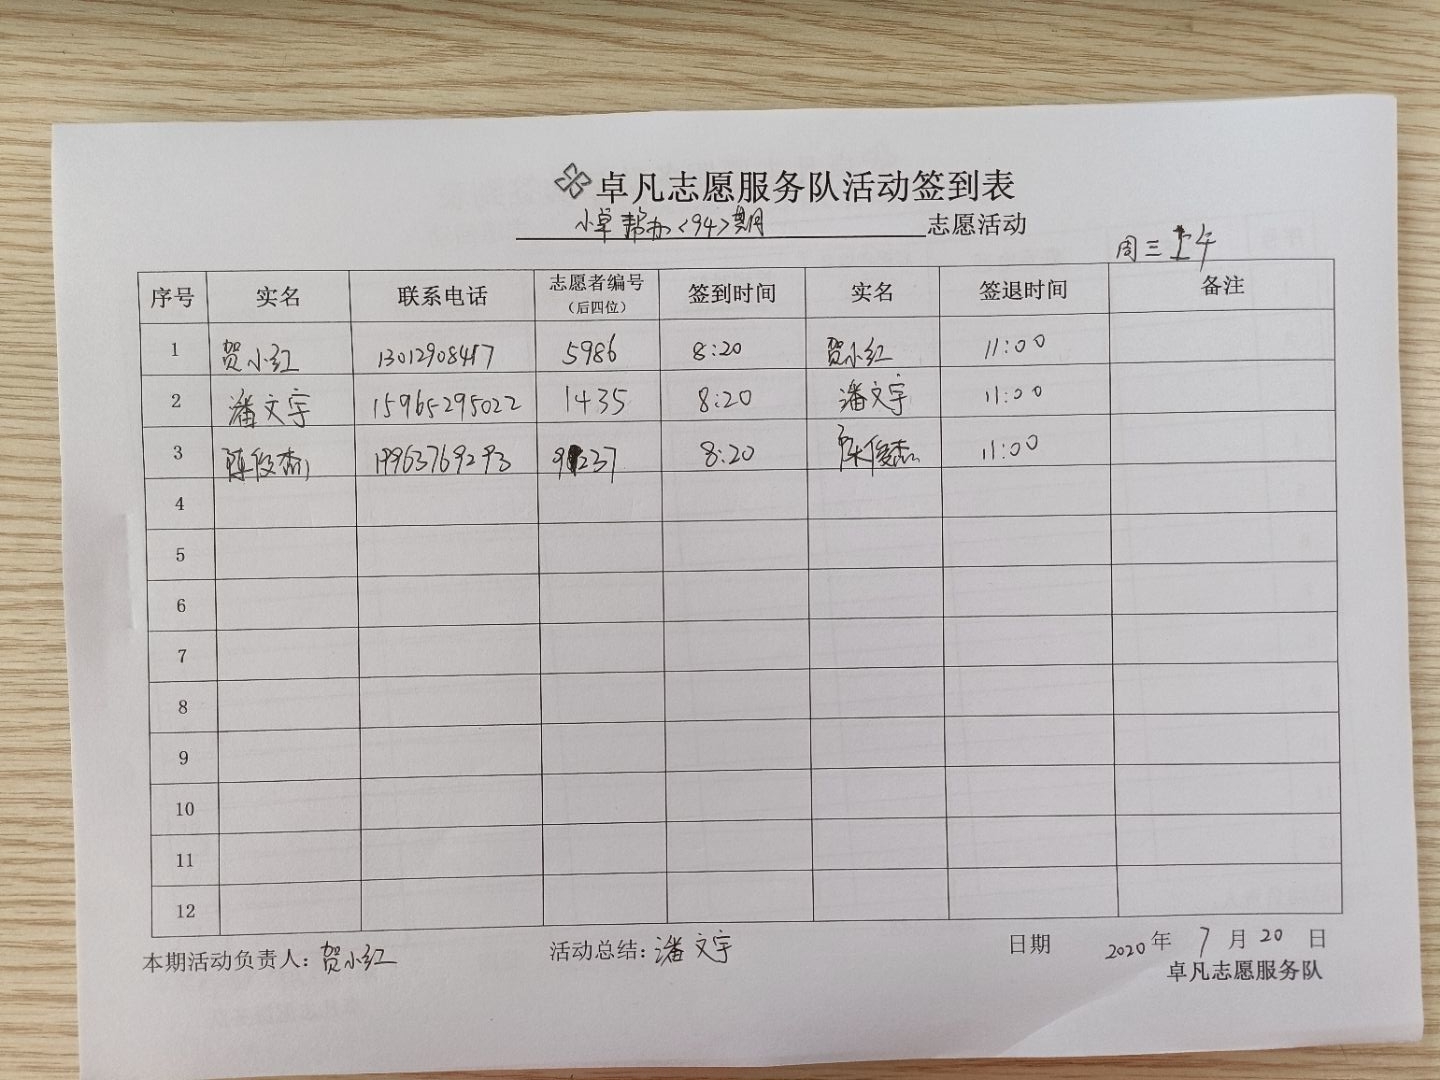 卓凡志愿服务队活动签到表
小卓帮办<94>期 志愿活动
周三上午
序号 实名 联系电话 志愿者编号（后四位） 签到时间 实名 签退时间 备注
1 贺小红 13012908417 5986 8:20 贺小红 11:00
2 潘文宇 15965295022 1435 8:20 潘文宇 11:00
3 陈俊杰 19963769293 9237 8:20 陈俊杰 11:00
4
5
6
7
8
9
10
11
12
本期活动负责人：贺小红 活动总结：潘文宇 日期 2020年7月20日
卓凡志愿服务队